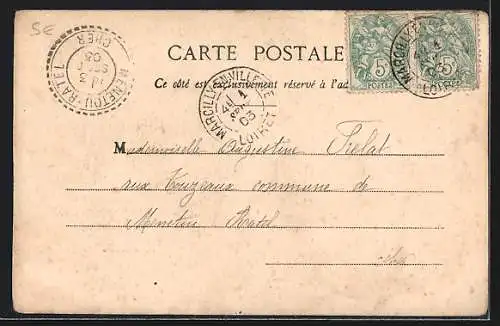 SE
CARTE POSTALE
Ce côté est exclusivement réservé à l'ad
MENETOU-RATEL
CHER
03
MARCILLY-EN-VILLETTE
4E 1
SEPT
03
LOIRET
5 5
POSTES
MARCILLY
03
LOIRET
Mademoiselle Augustine Fielat
aux Touzeaux commune de
Menetou Ratel
Cher